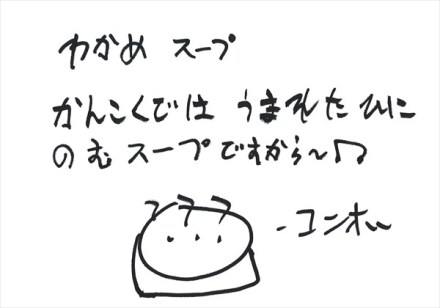 わかめ スープ
かんこくでは うまれた ひに
のむ スープですから〜♫
- コンオ